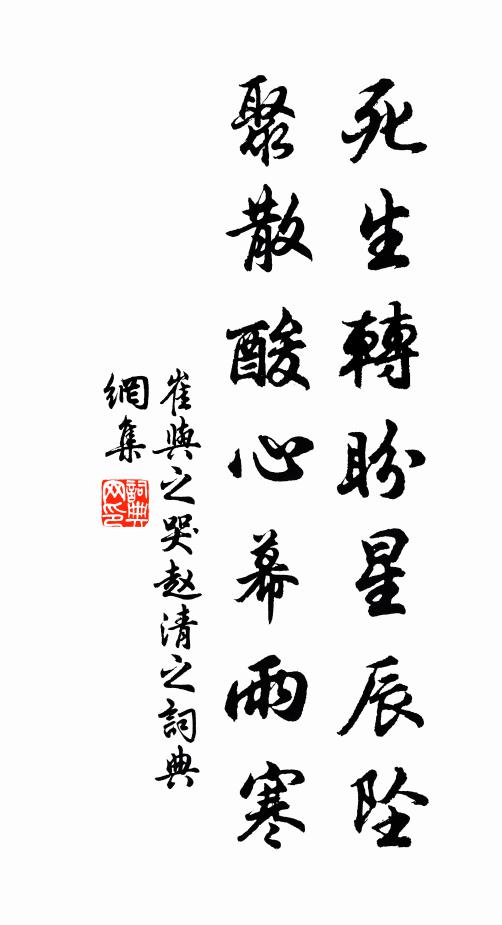 死生轉盼星辰墜
聚散酸心幕雨寒
崔與之哭赵清之詞典
網集
詞典網印